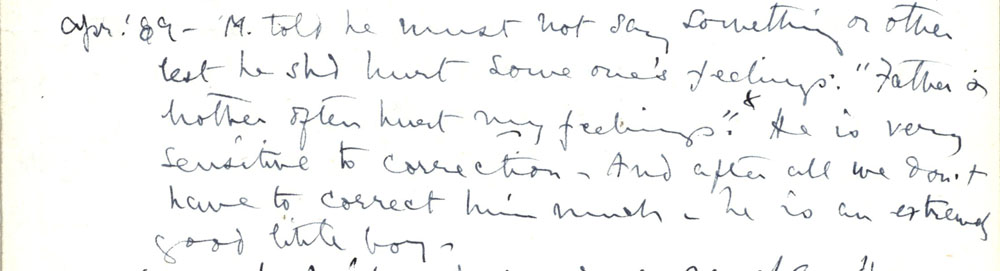 Apr. '89 - M. told he must not say something or other
lest he sh'd hurt some one's feelings: "Father &
mother often hurt my feelings". He is very
sensitive to correction - And after all we don't
have to correct him much - he is an extremely
good little boy -